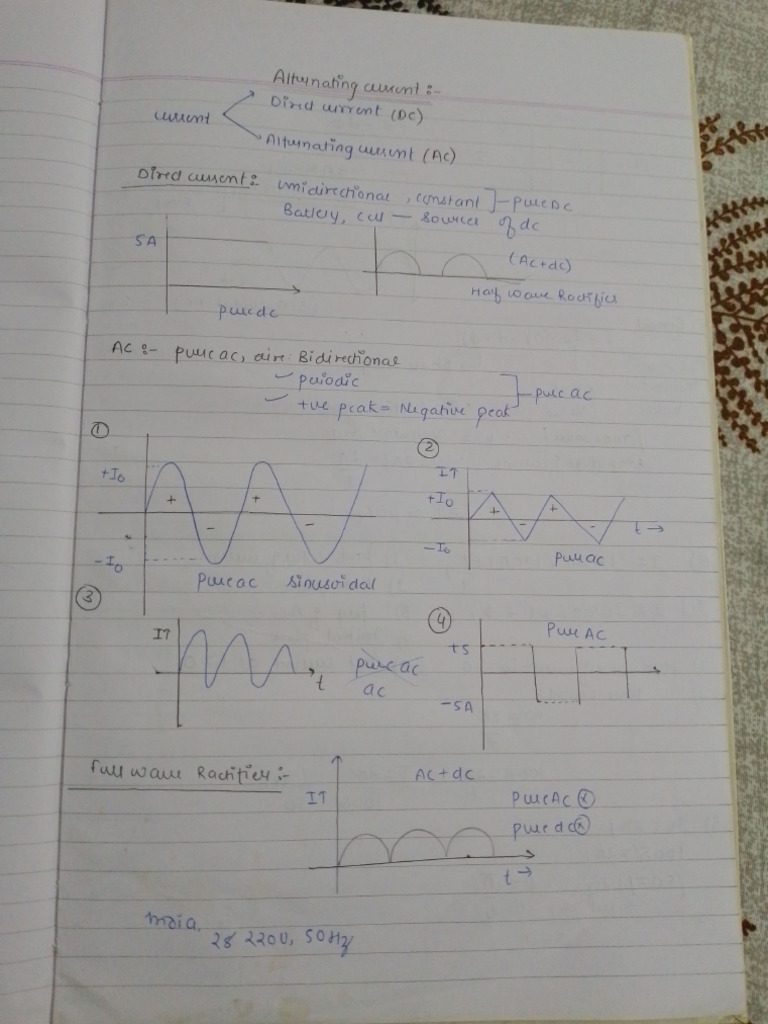 Alternating current :-
current
Direct current (DC)
Alternating current (AC)
Direct current :- unidirectional, constant ] — pure DC
Battery, cell — sources of dc
5A
(AC+dc)
Half wave Rectifier
pure dc
AC :- pure ac, dire: Bidirectional
periodic
+ve peak = Negative peak
pure ac
①
+I₀
+ +
- -
-I₀
pure ac sinusoidal
②
I↑
+I₀
+ +
- -
-I₀
t →
pure ac
③
I↑
t
pure ac
ac
④
Pure AC
+5
-5A
Full wave Ractifier :-
AC+dC
I↑
pure AC ⓧ
pure dc ⓧ
t →
India,
220V, 50Hz